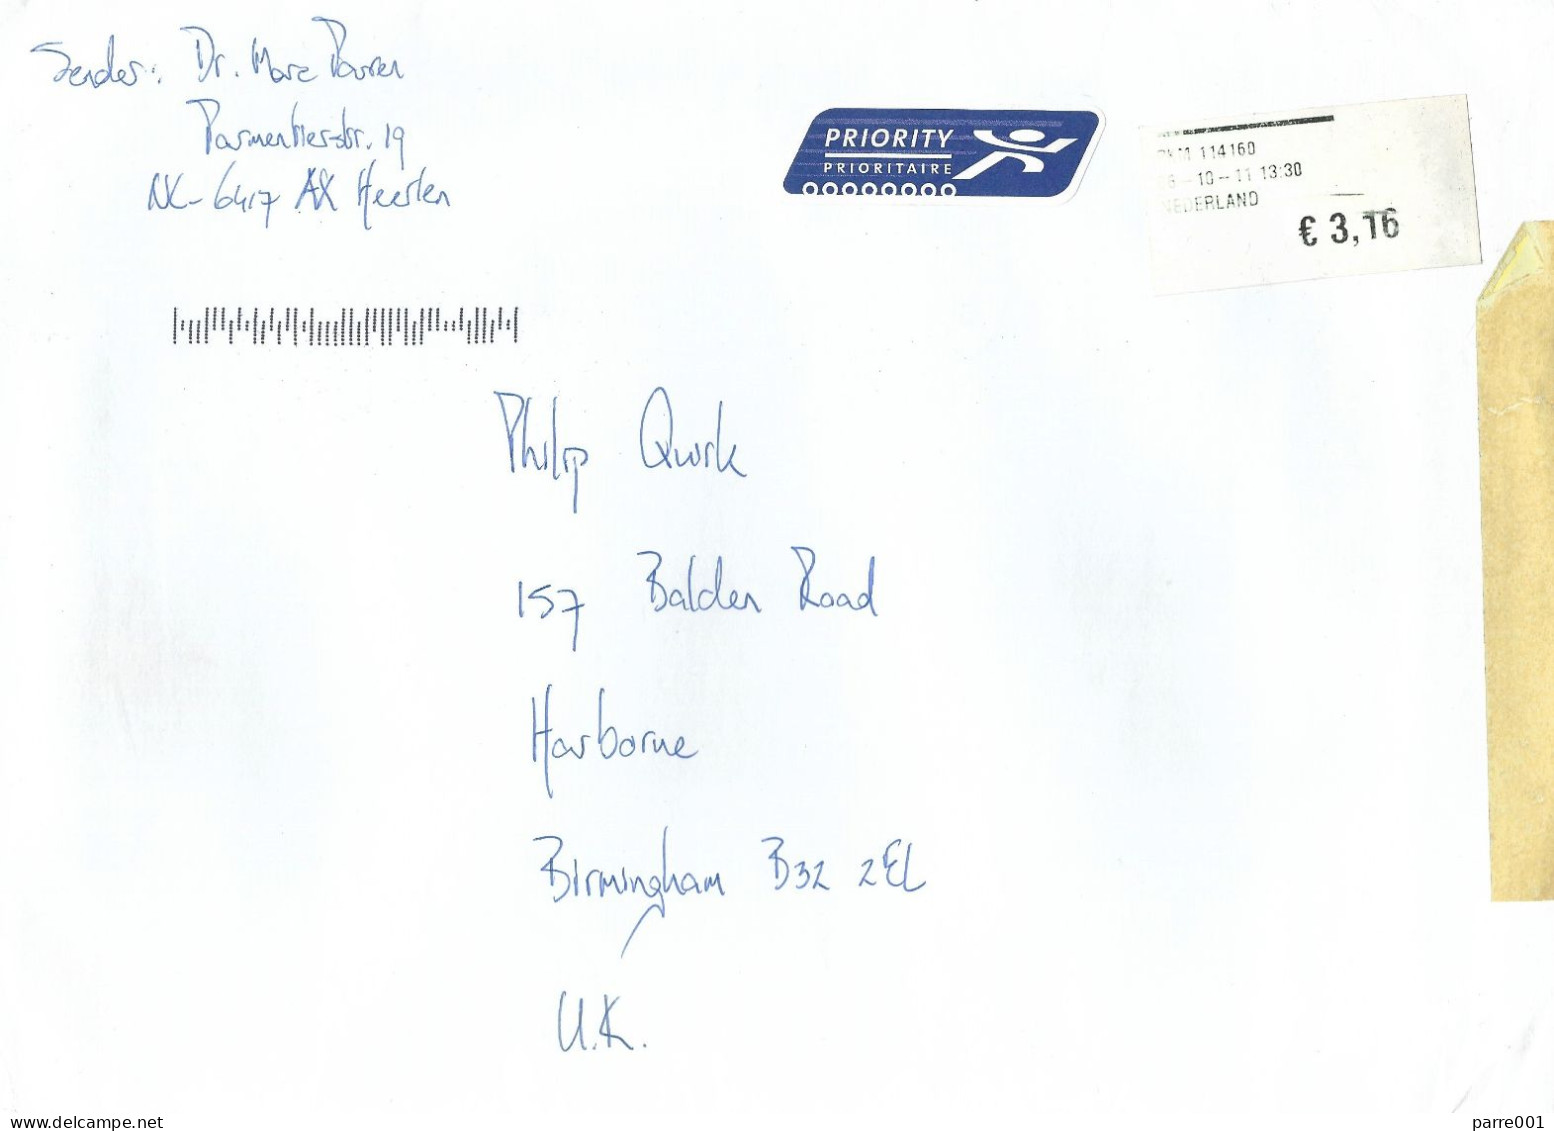 Sender: Dr. Marc Parren
Parmentierstr. 19
NL-6417 AX Heerlen
PRIORITY
PRIORITAIRE
114160
-10-11 13:30
NEDERLAND
€ 3,16
Philip Quirk
157 Balden Road
Harborne
Birmingham B32 2EL
U.K.
www.delcampe.net
parre001